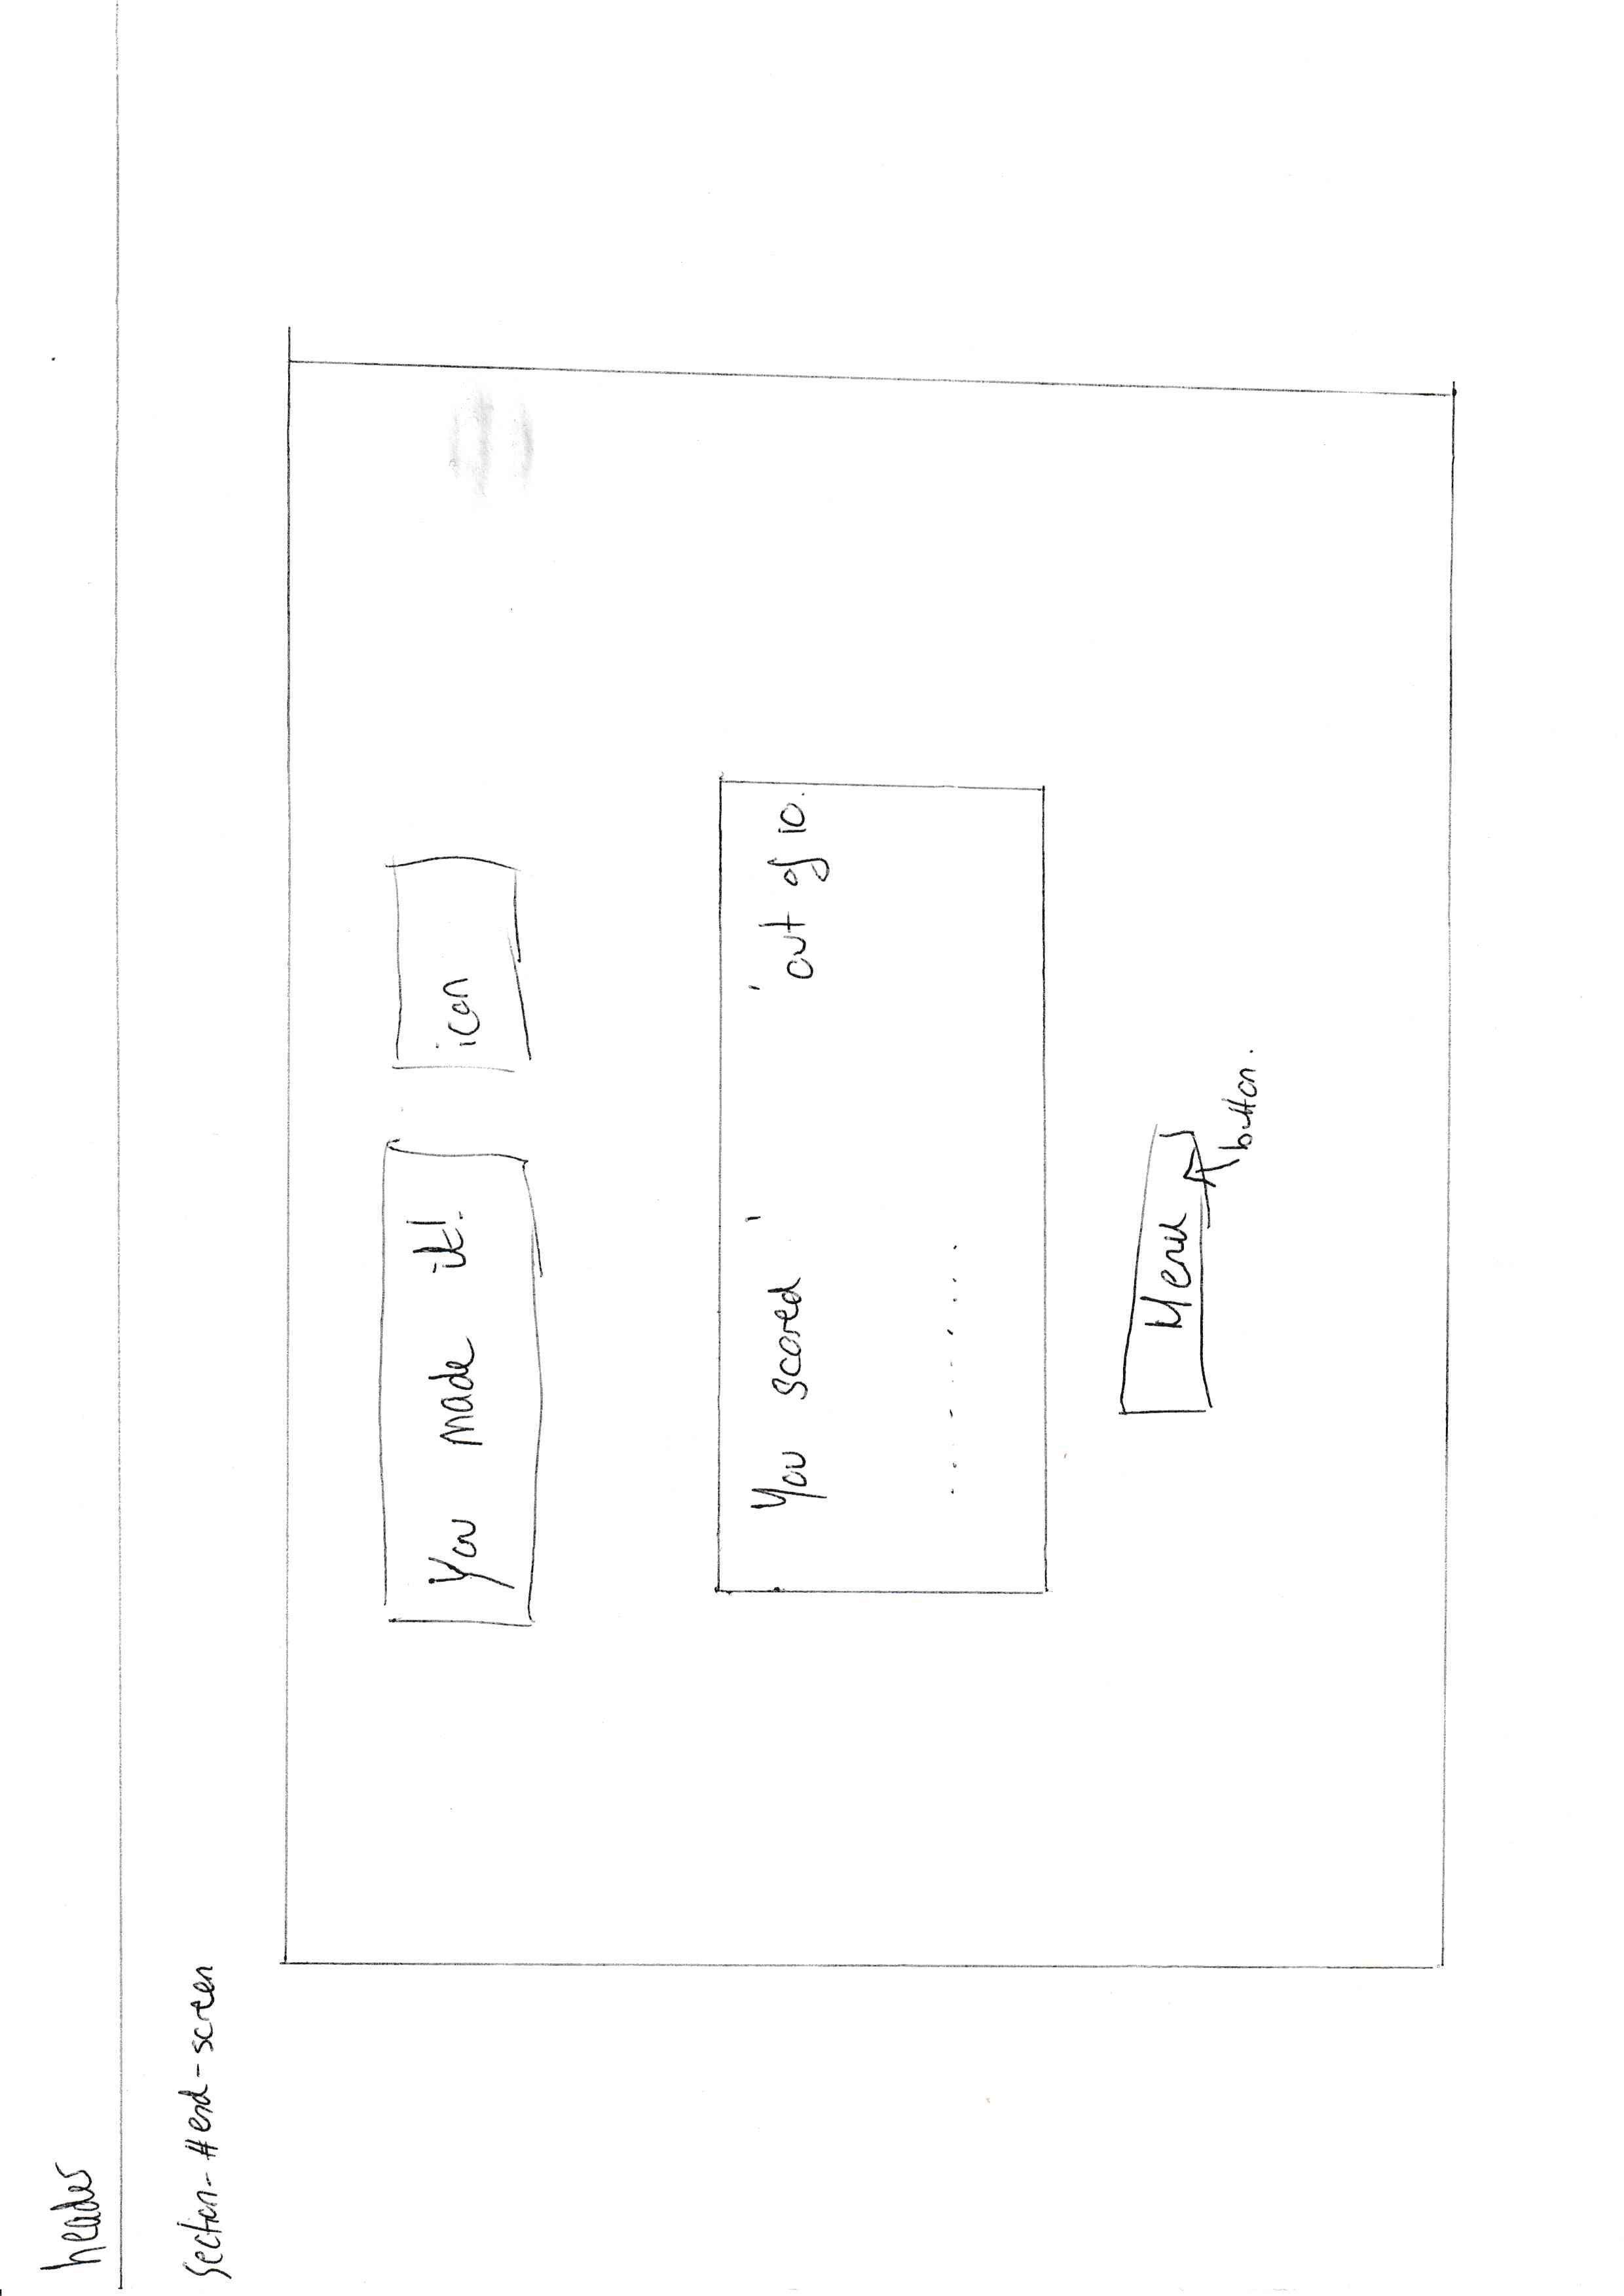 header
section-#end-screen
You made it!
icon
You scored ' ' out of 10.
..........
Menu
button.